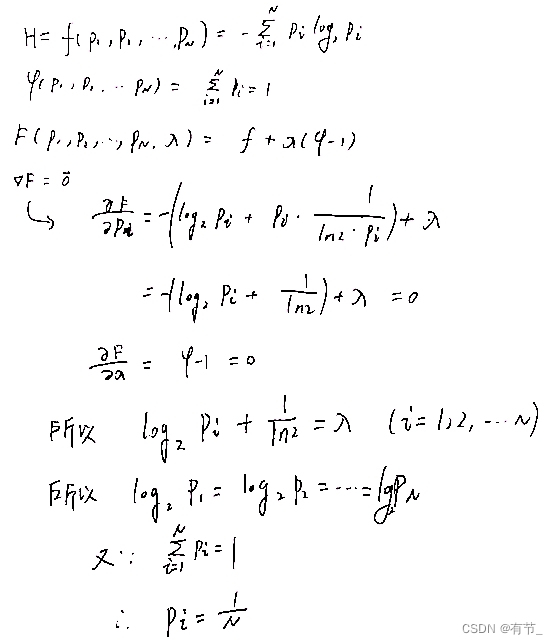 H = f(p₁, p₁, ⋯, pₙ) = -∑ᵢ₌₁ᴺ pᵢ log₂ pᵢ
φ(p₁, p₁, ⋯ pₙ) = ∑ᵢ₌₁ᴺ pᵢ = 1
F(p₁, p₂, ⋯, pₙ, λ) = f + λ(φ-1)
∇F = 0⃗
∂F/∂pᵢ = -(log₂ pᵢ + pᵢ · 1/(ln2 · pᵢ)) + λ
= -(log₂ pᵢ + 1/ln2) + λ = 0
∂F/∂λ = φ-1 = 0
所以 log₂ pᵢ + 1/ln2 = λ (i = 1, 2, ⋯ N)
所以 log₂ p₁ = log₂ p₂ = ⋯ = lg₂ pₙ
又∵ ∑ᵢ₌₁ᴺ pᵢ = 1
∴ pᵢ = 1/N
CSDN @有节_